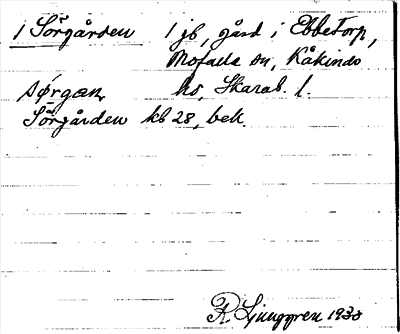 1 Sörgården 1 jb, gård i Ebbetorp,
Mofalla sn, Kåkinds
sǿrgan hd, Skarab. l.
Sörgården kb 28, bek.
R Ljunggren 1938